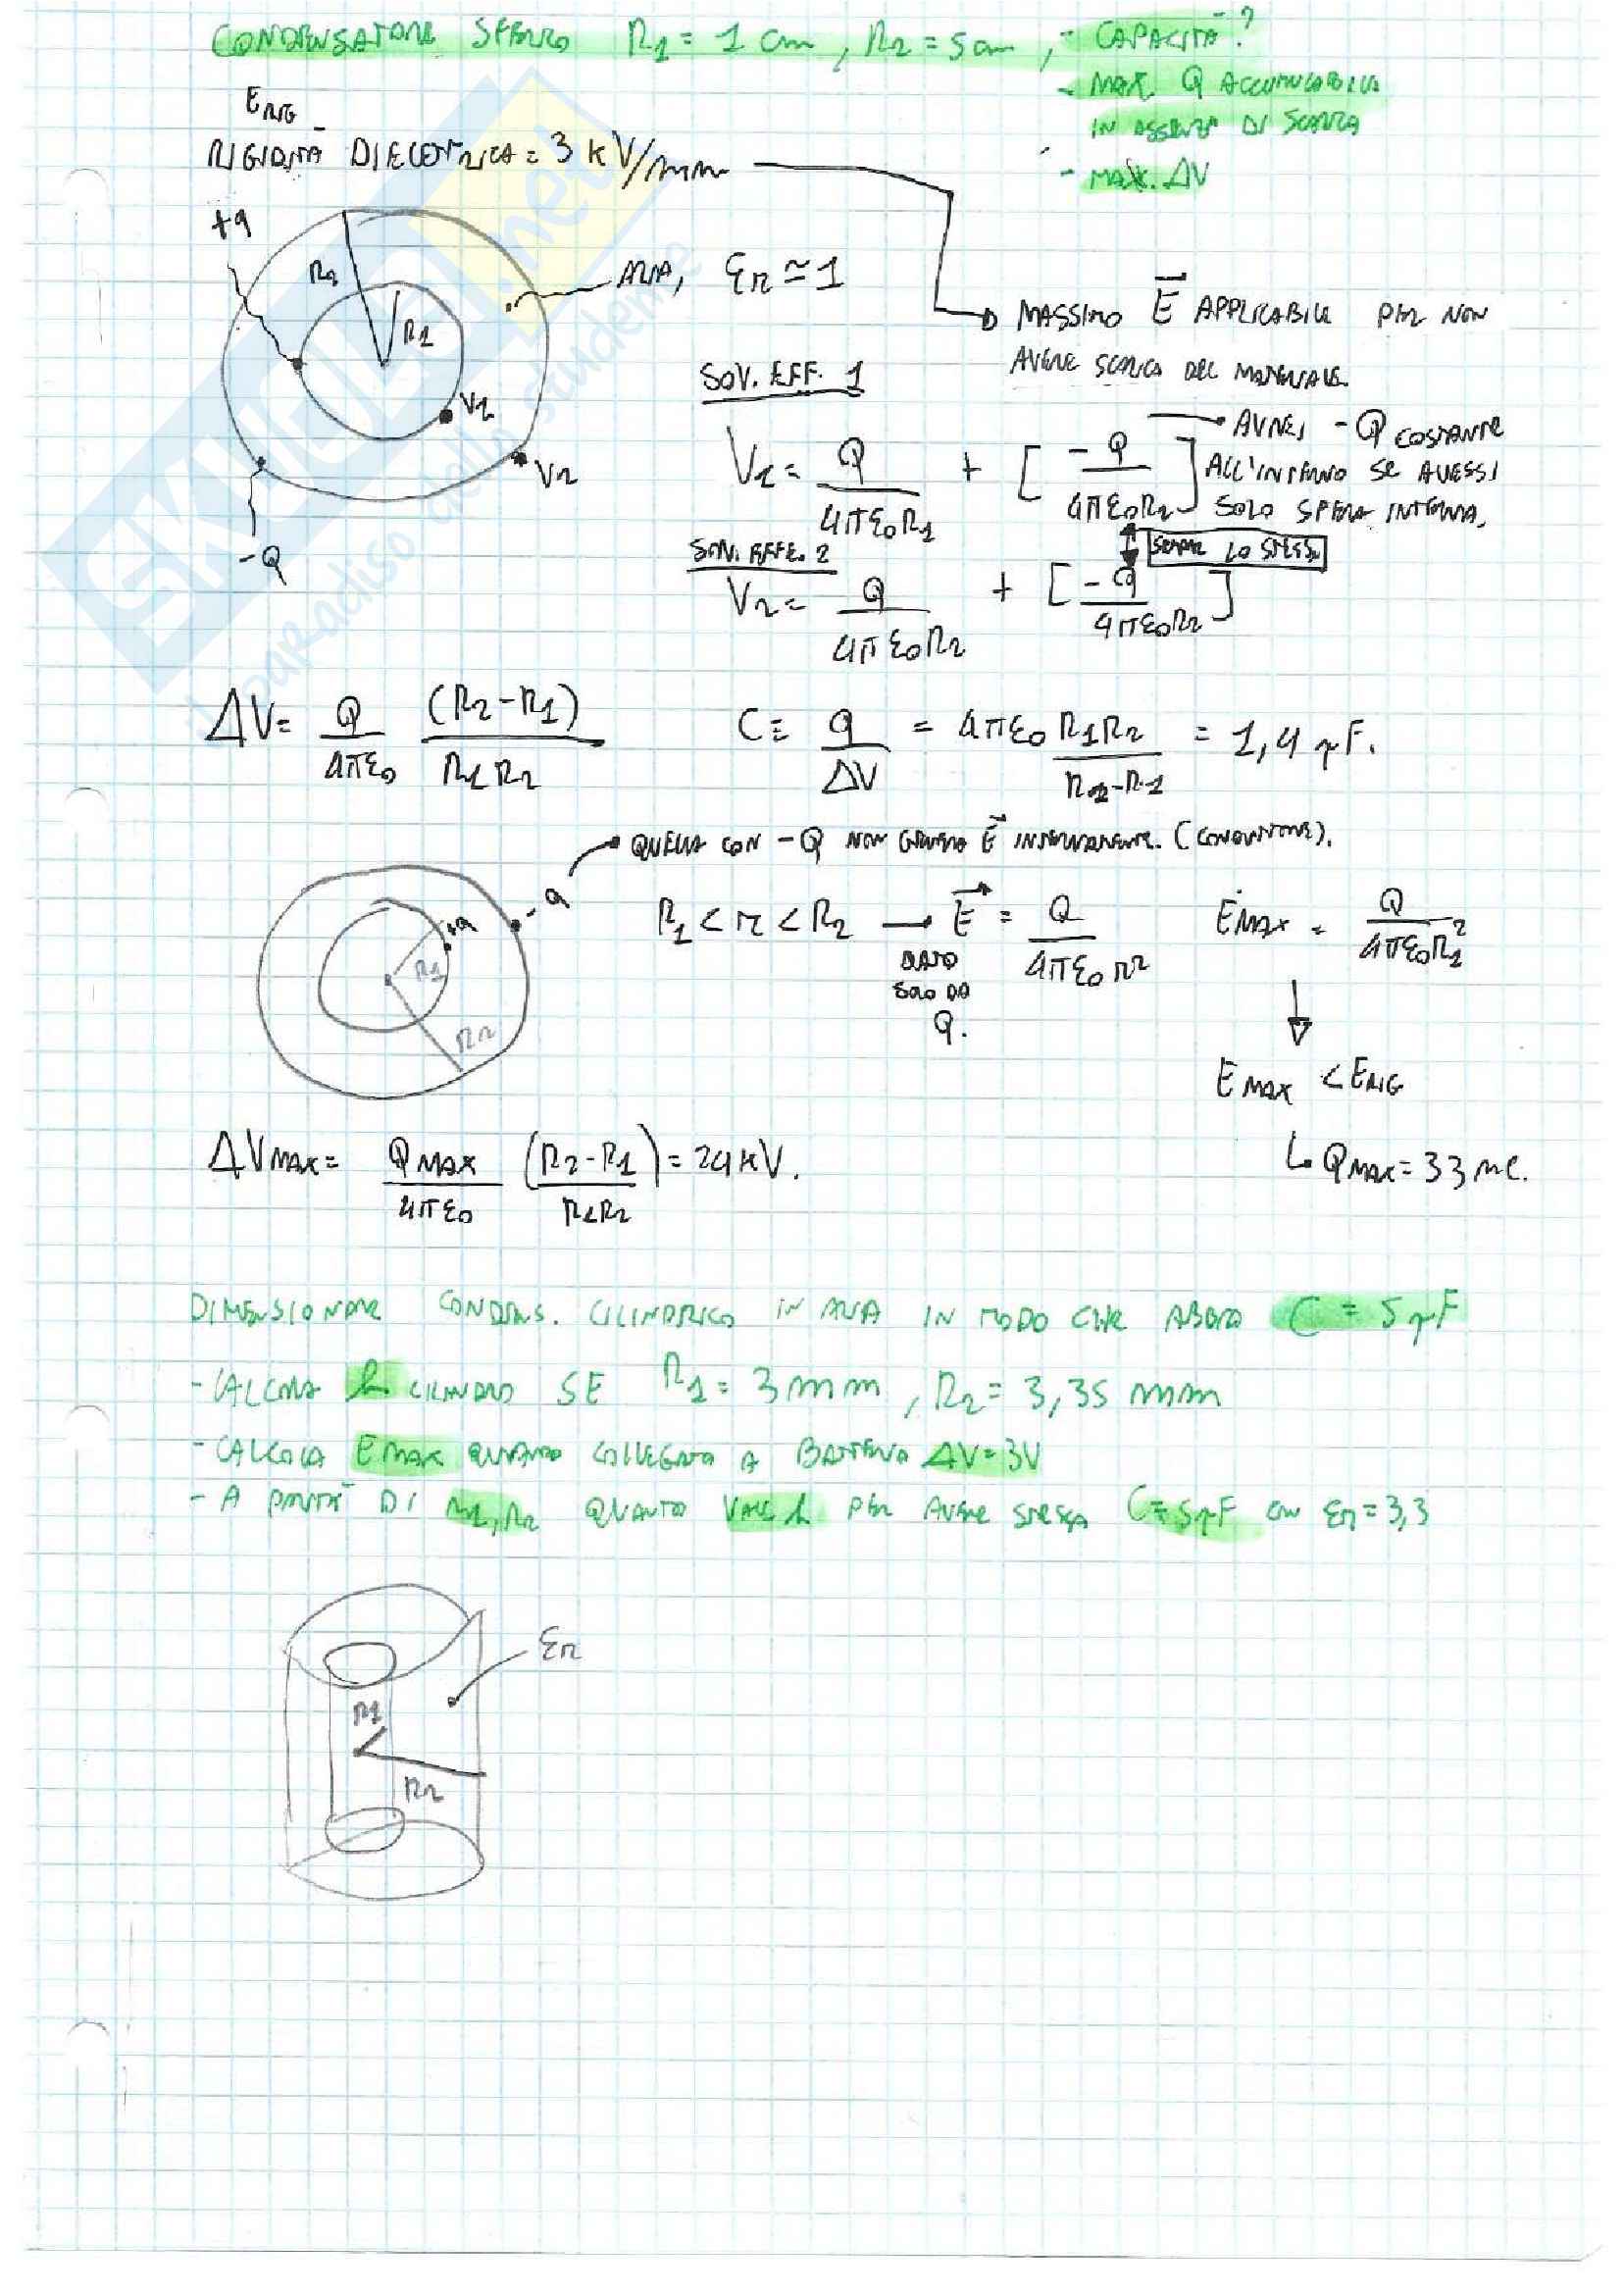 CONDENSATORE SFERICO R1 = 1 cm, R2 = 5 cm, - CAPACITÀ?
- MAX Q ACCUMULABILE
IN ASSENZA DI SCARICA
- MAX. ΔV
ERIG
RIGIDITÀ DIELETTRICA = 3 kV/mm
+q
R2
R1
V1
V2
-Q
ARIA, εR ≃ 1
MASSIMO E APPLICABILE PER NON
AVERE SCARICA DEL MATERIALE.
SOV. EFF. 1
V1 = Q/4πε0R1 + [-Q/4πε0R2]
AVREI -Q COSTANTE
ALL'INTERNO SE AVESSI
SOLO SFERA INTERNA.
SEMPRE LO STESSO
SOV. EFFE. 2
V2 = Q/4πε0R2 + [-Q/4πε0R2]
ΔV = Q/4πε0 (R2-R1)/R1R2
C ≡ q/ΔV = 4πε0 R1R2/R2-R1 = 1,4 pF.
QUELLA CON -Q NON GENERA E INTERNAMENTE. (CONDUTTORE).
-q
+q
R1
R2
R1 < r < R2 → E = Q/4πε0 r²
DATO
SOLO DA
Q.
EMAX = Q/4πε0R1²
EMAX < ERIG
QMAX = 33 nC.
ΔVMAX = QMAX/4πε0 (R2-R1/R1R2) = 24 kV.
DIMENSIONARE CONDENS. CILINDRICO IN ARIA IN MODO CHE ABBIA C = 5 pF
- CALCOLA h CILINDRO SE R1 = 3 mm, R2 = 3,35 mm
- CALCOLA EMAX QUANDO COLLEGATO A BATTERIA ΔV = 3V
- A PARITÀ DI R1, R2 QUANTO VALE h PER AVERE STESSA C = 5 pF CON εR = 3,3
εR
R1
R2
SKUOLA.net
il paradiso dello studente